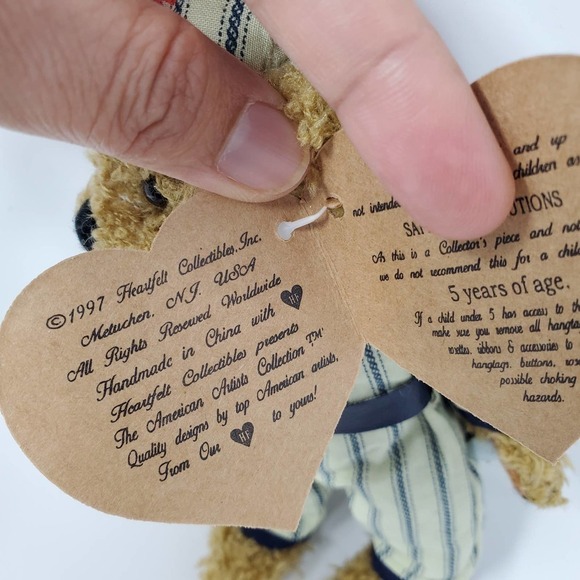 ©1997 Heartfelt Collectibles, Inc.
Metuchen, NJ. USA
All Rights Reserved Worldwide
Handmade in China with
HF
Heartfelt Collectibles presents
The American Artists Collection™
Quality designs by top American artists.
From Our HF to yours!
and up
children
not
As this is a Collector's piece and not
we do not recommend this for a child
5 years of age.
If a child under 5 has access to
make sure you remove all
ribbons & accessories to
hangtags, buttons,
possible choking
hazards.